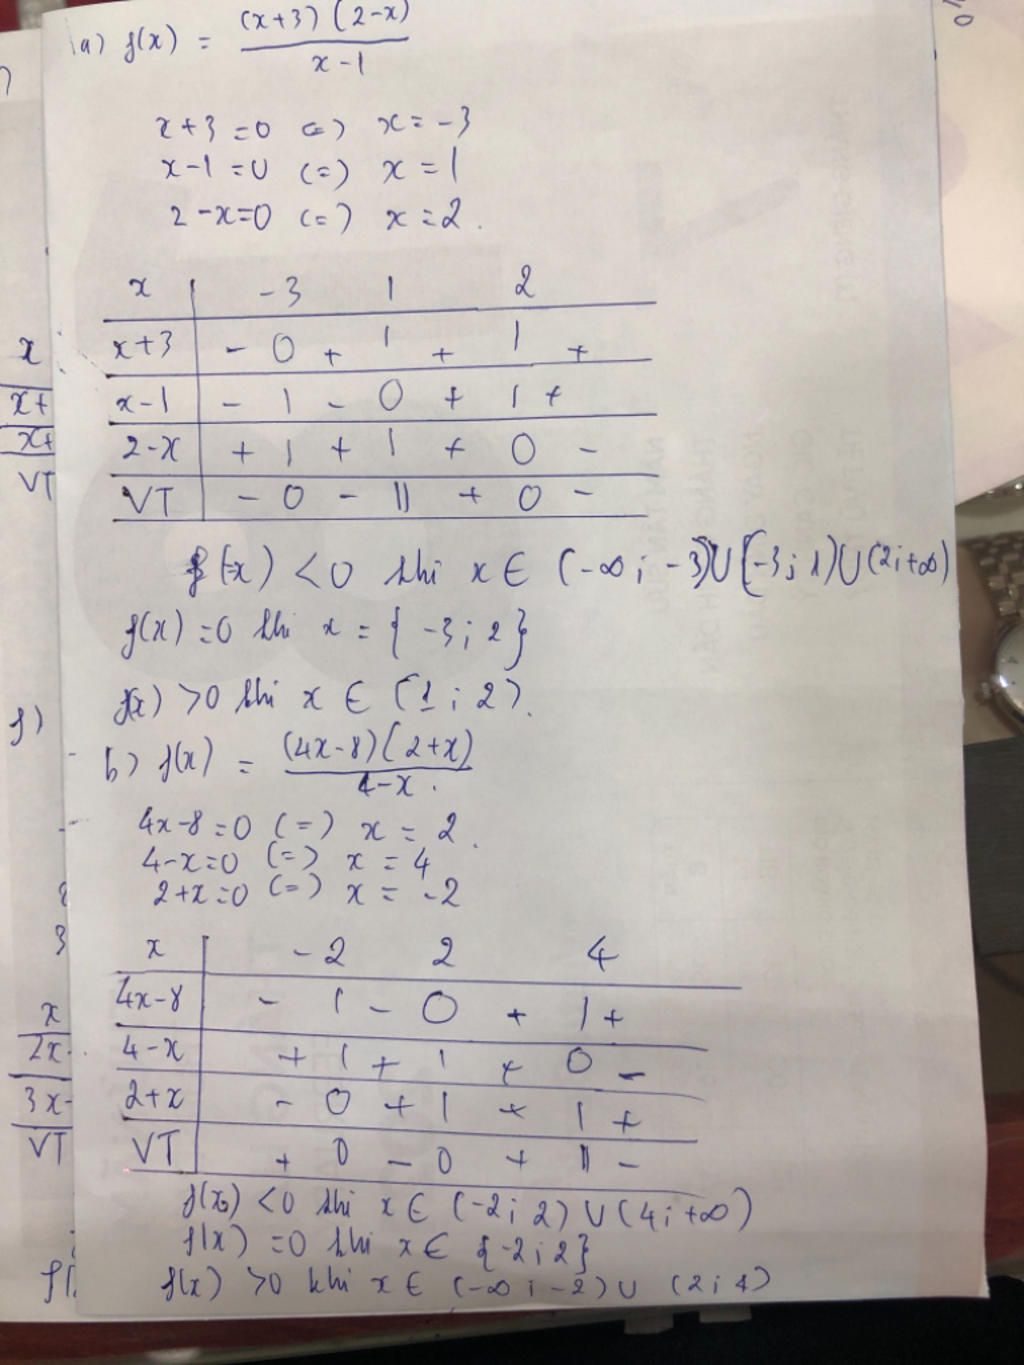 a) f(x) = (x+3)(2-x) / x-1
x+3=0 (=) x=-3
x-1=0 (=) x=1
2-x=0 (=) x=2.
x | -3 1 2
x+3 | - 0 + | + | +
x-1 | - | - 0 + | +
2-x | + | + | + 0 -
VT | - 0 - || + 0 -
f(x) <0 khi x ∈ (-∞; -3)∪(-3; 1)∪(2;+∞)
f(x) =0 khi x = { -3; 2}
f(x) >0 khi x ∈ (1; 2).
b) f(x) = (4x-8)(2+x) / 4-x.
4x-8=0 (=) x = 2.
4-x=0 (=) x = 4
2+x=0 (=) x = -2
x | -2 2 4
4x-8 | - | - 0 + | +
4-x | + | + | + 0 -
2+x | - 0 + | + | +
VT | + 0 - 0 + || -
f(x) <0 khi x ∈ (-2; 2) ∪ (4; +∞)
f(x) =0 khi x ∈ {-2; 2}
f(x) >0 khi x ∈ (-∞; -2) ∪ (2; 4)
x
x+
x+
VT
f)
3
x
2x
3x-
VT